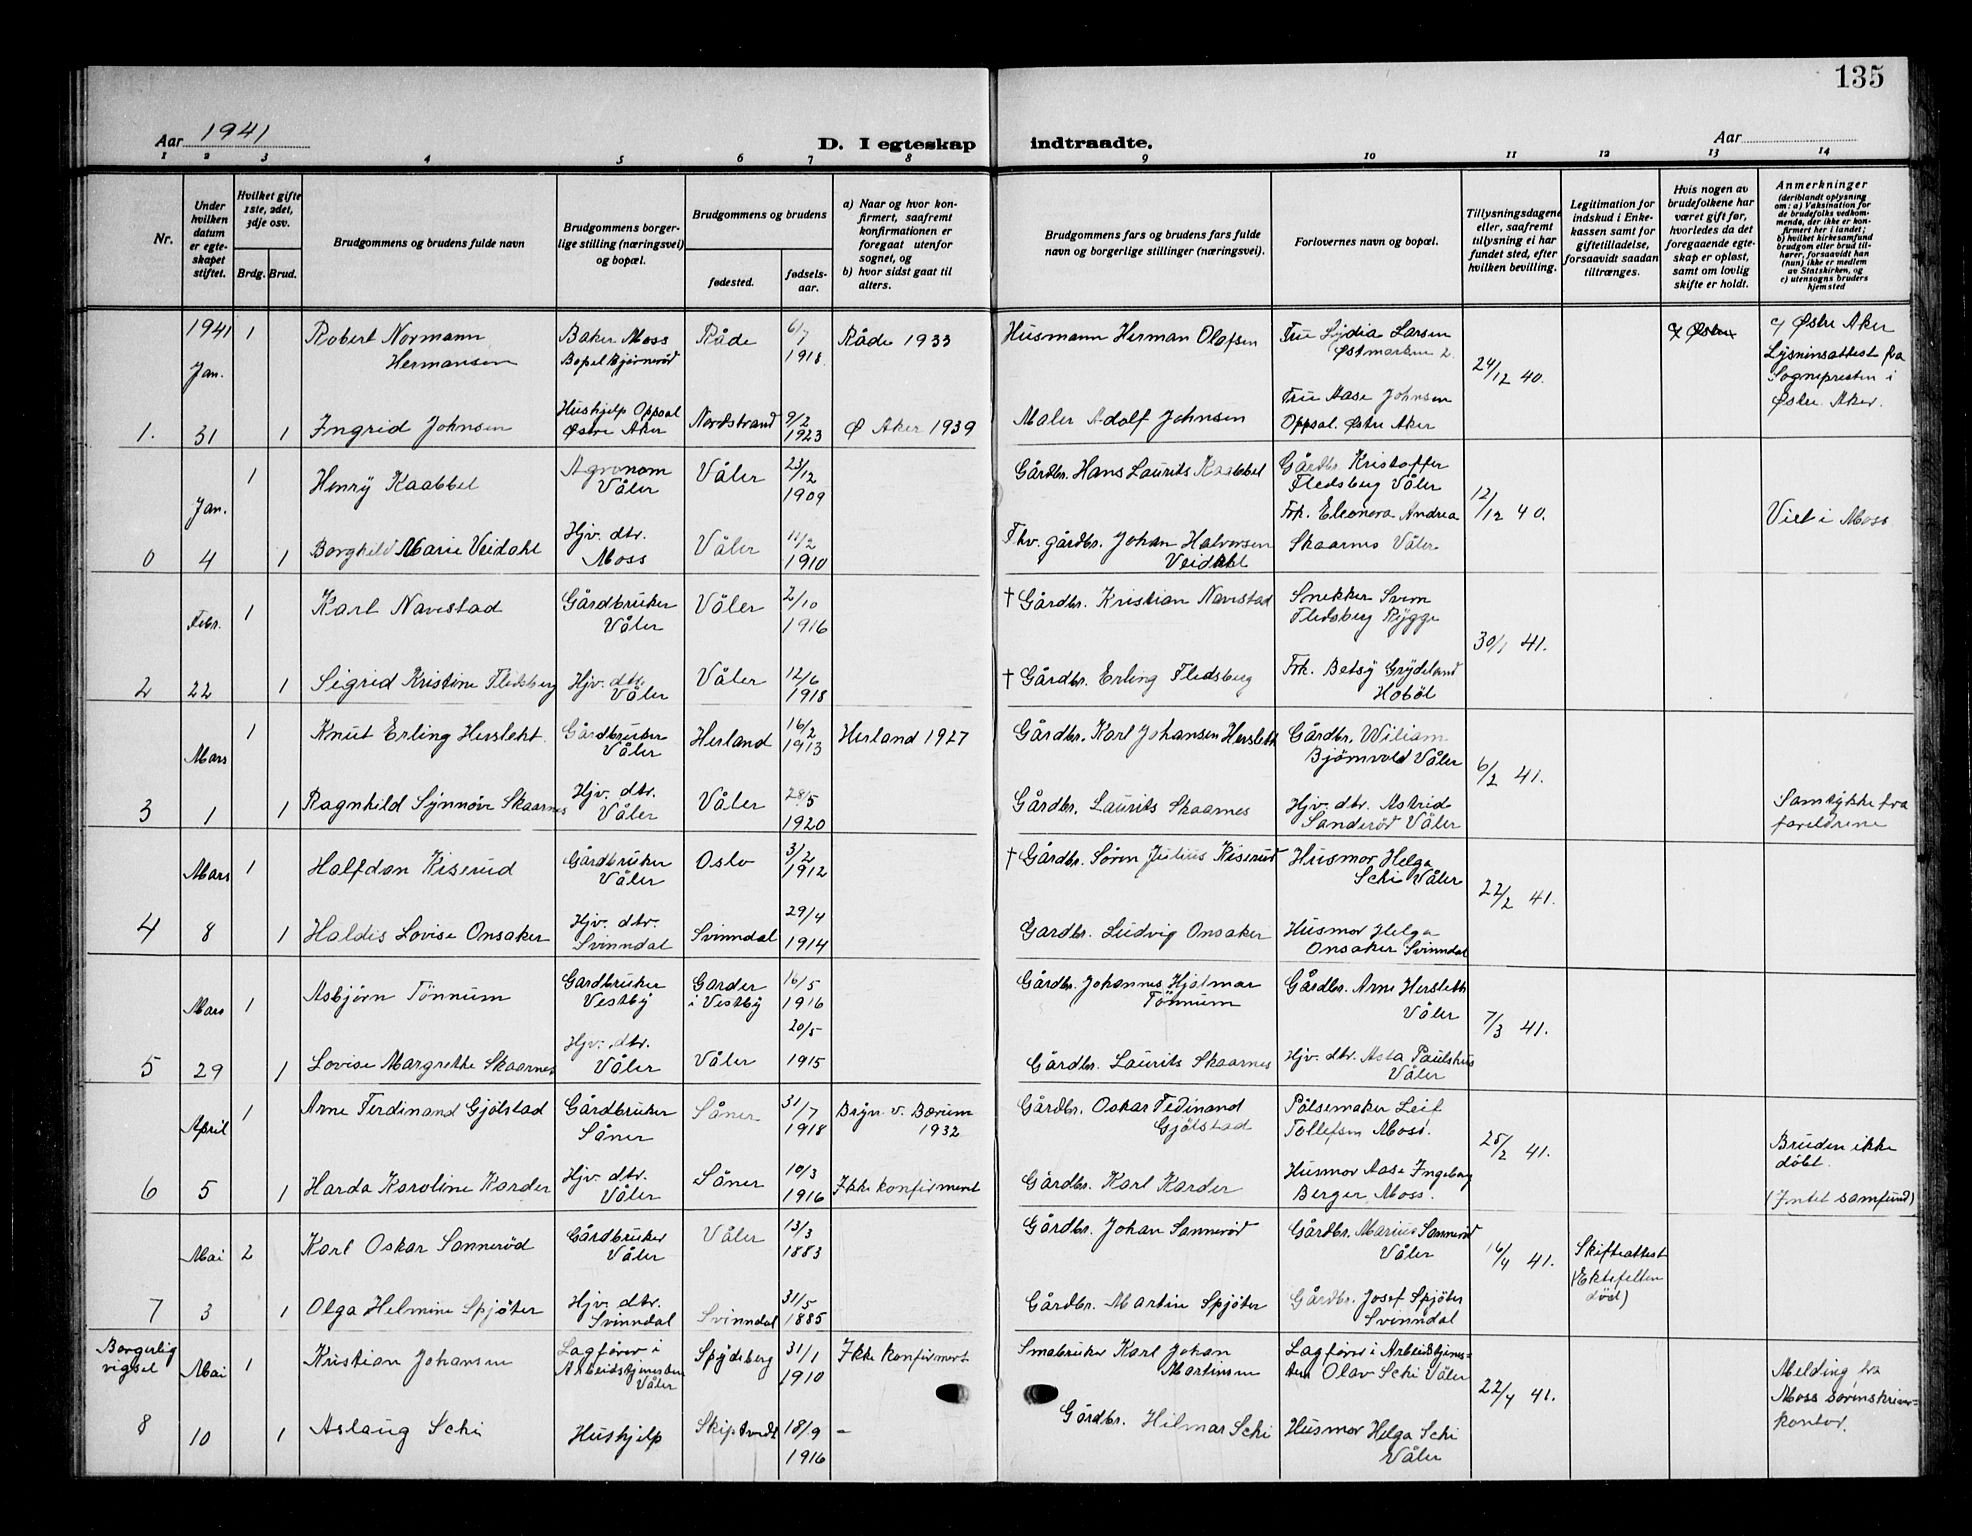 135
Aar 1941
D. I egteskap indtraadte.
Aar
1 2 3 4 5 6 7 8 9 10 11 12 13 14
Nr.
Under hvilken datum er egteskapet stiftet.
Hvilket gifte 1ste, 2det, 3dje osv.
Brdg. Brud.
Brudgommens og brudens fulde navn
Brudgommens borgerlige stilling (næringsvei) og bopæl.
Brudgommens og brudens
fødested.
fødselsaar.
a) Naar og hvor konfirmert, saafremt konfirmationen er foregaat utenfor sognet, og
b) hvor sidst gaat til alters.
Brudgommens fars og brudens fars fulde navn og borgerlige stillinger (næringsvei).
Forlovernes navn og bopæl.
Tillysningsdagene eller, saafremt tillysning ei har fundet sted, efter hvilken bevilling.
Legitimation for indskud i Enkekassen samt for giftetilladelse, forsaavidt saadan tiltrænges.
Hvis nogen av brudefolkene har været gift før, hvorledes da det foregaaende egteskap er opløst, samt om lovlig skifte er holdt.
Anmerkninger (deriblandt oplysning om: a) Vaksination for de brudefolks vedkommende, der ikke er konfirmert her i landet; b) hvilket kirkesamfund brudgom eller brud tilhører, forsaavidt han (hun) ikke er medlem av Statskirken, og c) utensogns bruders hjemsted
1941 Jan. 1 Robert Normann Hermansen Baker Moss Bopel Bjørnerød Råde 6/7 1918 Råde 1933 Husmann Herman Olafsen Fru Lydia Larsen Østmarken 2. 24/12 40. c/ Østre c/ Østre Aker Lysninsattest fra Sognepresten i Østre Aker.
1. 31 1 Ingrid Johnsen Hushjelp Oppsal Østre Aker Nordstrand 9/2 1923 Ø Aker 1939 Maler Adolf Johnsen Fru Aase Johnsen Oppsal. Østre Aker
Jan. 1 Henry Kaabbel Agronom Våler Våler 23/12 1909 Gårdbr. Hans Laurits Kaabbel Gårdbr. Kristoffer Fledsberg Våler 12/12 40. Viet i Moss
0 4 1 Borghild Marie Veidahl Hjv. dtr. Moss Våler 11/2 1910 Fhv. gårdbr. Johan Halvorsen Veidahl Frk. Eleonora Andrea Skaarnes Våler
Febr. 1 Karl Navestad Gårdbruker Våler Våler 2/10 1916 † Gårdbr. Kristian Navestad Snekker Svem Fledsberg Rygge 30/1 41.
2 22 1 Sigrid Kristine Fledsberg Hjv. dtr. Våler Våler 12/6 1918 † Gårdbr. Erling Fledsberg Frk. Betsy Grydeland Hobøl
Mars 1 Knut Erling Hersleht. Gårdbruker Våler Herland 16/2 1913 Herland 1927 Gårdbr. Karl Johansen Hersleth Gårdbr. Wiliam Bjørnvold Våler 6/2 41.
3 1 1 Ragnhild Synnøve Skaarnes Hjv. dtr. Våler Våler 28/5 1920 Gårdbr. Laurits Skaarnes Hjv. dtr. Astrid Sanderød Våler Samtykke fra foreldrene
Mars 1 Halfdan Kiserud Gårdbruker Våler Oslo 3/2 1912 † Gårdbr. Søren Julius Kiserud Husmor Helga Schi Våler 22/2 41.
4 8 1 Haldis Lovise Onsaker Hjv. dtr. Svinndal Svinndal 29/4 1914 Gardbr. Ludvig Onsaker Husmor Helga Onsaker Svinndal
Mars 1 Asbjørn Tønnum Gardbruker Vestby Garder i Vestby 16/5 1916 Gårdbr. Johannes Hjalmar Tønnum Gårdbr. Arne Hersleth Våler 7/3 41.
5 29 1 Lovise Margrethe Skaarnes Hjv. dtr. Våler Våler 20/5 1915 Gårdbr. Laurits Skaarnes Hjv. dtr. Asta Paulshus Våler
April 1 Arne Ferdinand Gjølstad Gårdbruker Såner Såner 31/7 1918 Bryn v. Bærum 1932 Gårdbr. Oskar Fedinand Gjølstad Pølsemaker Leif Tollefsen Moss. 25/2 41. Bruden ikke døbt.
6 5 1 Harda Karoline Karder Hjv. dtr. Våler Såner 10/3 1916 Ikke konfirmert Gårdbr. Karl Karder Husmor Aase Ingeborg Berger, Moss. (Intet samfund)
Mai 2 Karl Oskar Sannerød Gårdbruker Våler Våler 13/3 1883 Gårdbr. Johan Sannerød Gårdbr. Marius Sannerød Våler 16/4 41. Skifteattest (Ektefellen død)
7 3 1 Olga Helmine Spjøter Hjv. dtr. Svinndal Svinndal 31/5 1885 Gårdbr. Martin Spjøter Gårdbr. Josef Spjøter Svinndal
Borgerlig vigsel Mai 1 Kristian Johansen Lagfører i Arbeidstjenesten Våler Spydeberg 31/1 1910 Ikke konfirmert Småbruker Karl Johan Martinsen Lagfører i Arbeidstjenesten Olav Schi Våler 22/4 41. Melding fra Moss sorenskriverkontor.
8 10 1 Aslaug Schi Hushjelp Skiptvedt 18/9 1916 - Gårdbr. Hilmar Schi Husmor Helga Schi Våler